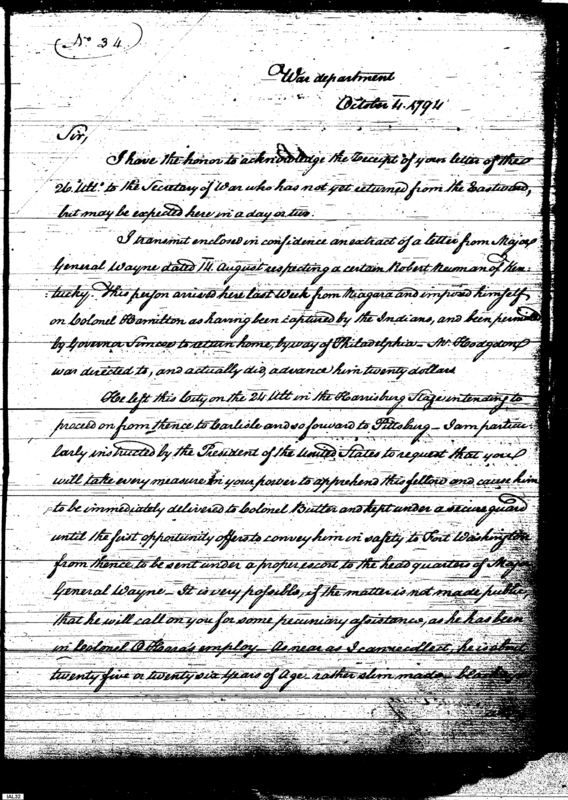 (No 34)
War department
October 4. 1794
Sir,
I have the honor to acknowledge the Receipt of your letter of the
26th Ulto. to the Secretary of War who has not yet returned from the Eastward,
but may be expected here in a day or two.
I transmit enclosed in confidence an extract of a letter from Major
General Wayne dated 14 August respecting a certain Robert Newman of Ken-
tucky. This person arrived here last Week from Niagara and imposed himself
on Colonel Hamilton as having been captured by the Indians, and been permitted
by Governor Simcoe to return home, by way of Philadelphia — Mr. Hodgdon
was directed to, and actually did, advance him twenty dollars
He left this City on the 24 Ult in the Harrisburg Stage intending to
proceed on from thence to Carlisle and so forward to Pittsburg — I am particu-
larly instructed by the President of the United States to request that you
will take every measure in your power to apprehend this fellow and cause him
to be immediately delivered to Colonel Butler and kept under a secure guard
until the first opportunity offers to convey him in safety to Fort Washington
from thence to be sent under a proper escort to the head quarters of Major
General Wayne — It is very possible, if the matter is not made public,
that he will call on you for some pecuniary assistance, as he has been
in Colonel O'Hara's employ — As near as I can recollect, he is about
twenty five or twenty six Years of Age — rather slim made — black
IAL32